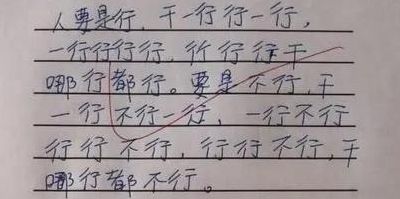 人要是行，干一行行一行，
一行行行行，行行行干
哪行都行。要是不行，干
一行不行一行，一行不行
行行不行，行行不行，干
哪行都不行。